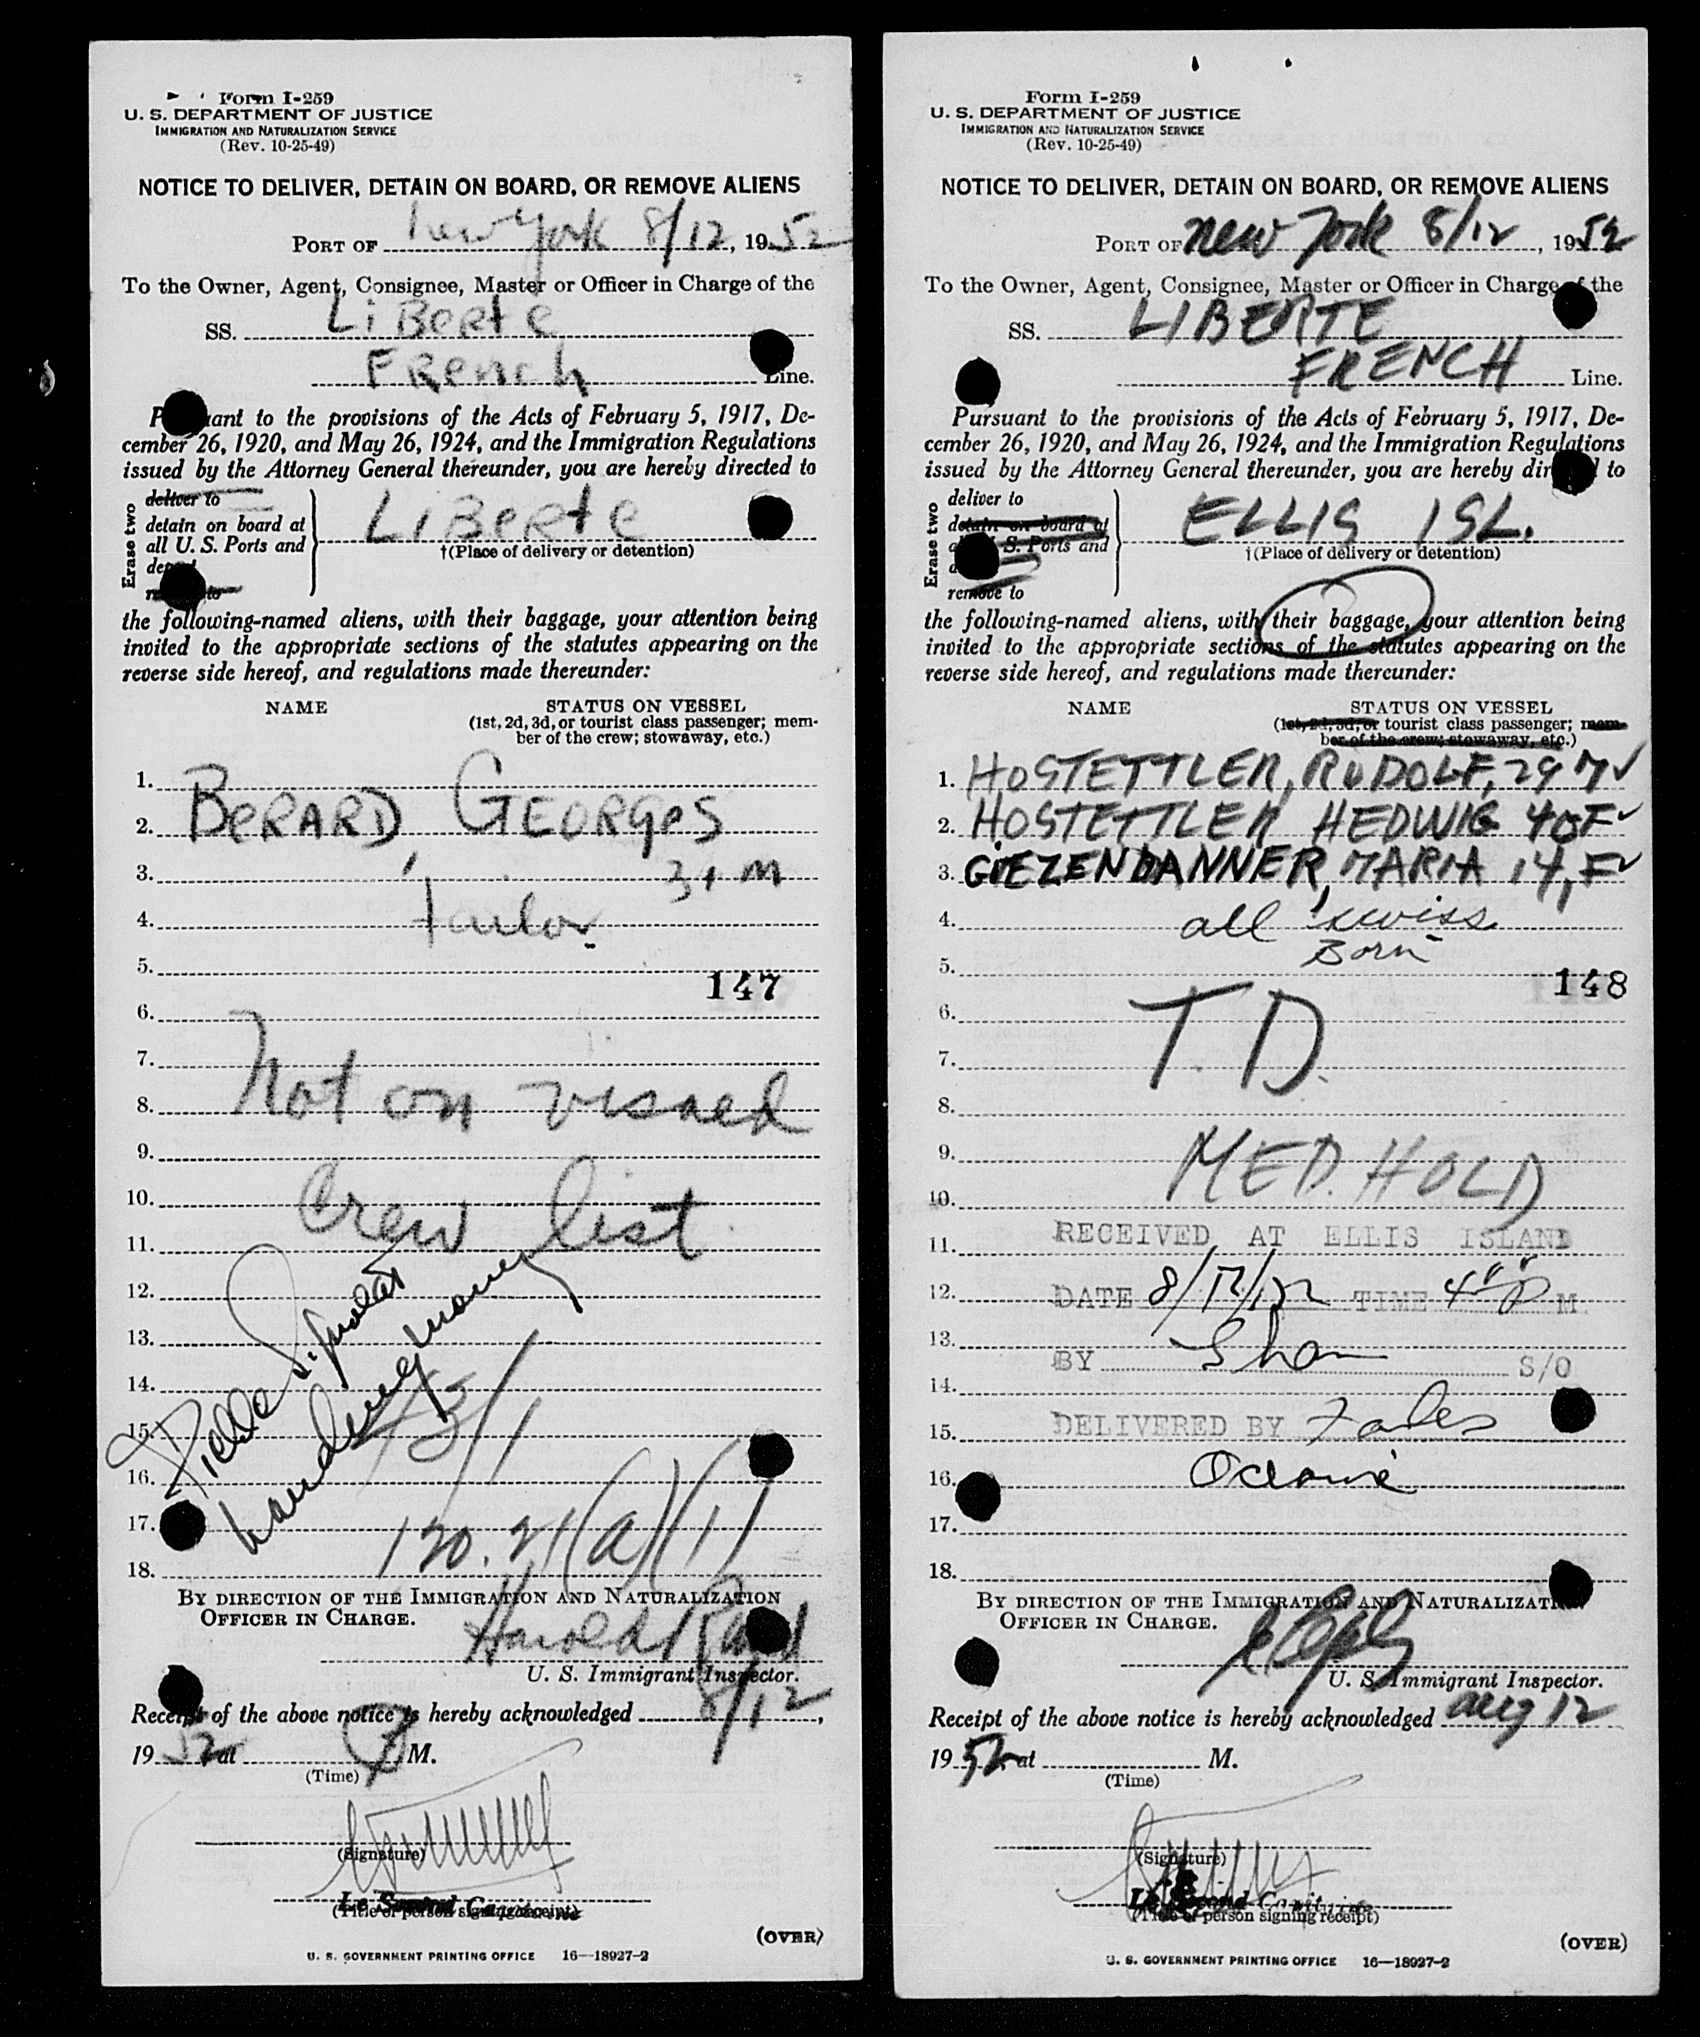 Form I-259
U. S. DEPARTMENT OF JUSTICE
IMMIGRATION AND NATURALIZATION SERVICE
(Rev. 10-25-49)
NOTICE TO DELIVER, DETAIN ON BOARD, OR REMOVE ALIENS
PORT OF New York 8/12, 1952
To the Owner, Agent, Consignee, Master or Officer in Charge of the
SS. LiBerte
French Line.
Pursuant to the provisions of the Acts of February 5, 1917, De-
cember 26, 1920, and May 26, 1924, and the Immigration Regulations
issued by the Attorney General thereunder, you are hereby directed to
Erase two
deliver to
detain on board at
all U. S. Ports and
LiBerte
†(Place of delivery or detention)
the following-named aliens, with their baggage, your attention being
invited to the appropriate sections of the statutes appearing on the
reverse side hereof, and regulations made thereunder:
NAME STATUS ON VESSEL
(1st, 2d, 3d, or tourist class passenger; mem-
ber of the crew; stowaway, etc.)
1.
2. BERARD, GEORGES
3. 31 M
4. tailor
5. 147
6.
7.
8. Not on visaed
9.
10. Crew list
11.
12.
13.
14.
15.
16.
17.
18. 120.21(a)(1)
landing money
BY DIRECTION OF THE IMMIGRATION AND NATURALIZATION
OFFICER IN CHARGE.
Harold Rand
U. S. Immigrant Inspector.
Receipt of the above notice is hereby acknowledged 8/12,
1952 at M.
(Time)
(Signature)
Le Second Capitaine
(Title of person signing receipt)
(OVER)
U. S. GOVERNMENT PRINTING OFFICE 16—18927-2
Form I-259
U. S. DEPARTMENT OF JUSTICE
IMMIGRATION AND NATURALIZATION SERVICE
(Rev. 10-25-49)
NOTICE TO DELIVER, DETAIN ON BOARD, OR REMOVE ALIENS
PORT OF New York 8/12, 1952
To the Owner, Agent, Consignee, Master or Officer in Charge of the
SS. LIBERTE
FRENCH Line.
Pursuant to the provisions of the Acts of February 5, 1917, De-
cember 26, 1920, and May 26, 1924, and the Immigration Regulations
issued by the Attorney General thereunder, you are hereby directed to
Erase two
deliver to
detain on board at
all U. S. Ports and
remove to
ELLIS ISL.
†(Place of delivery or detention)
the following-named aliens, with their baggage, your attention being
invited to the appropriate sections of the statutes appearing on the
reverse side hereof, and regulations made thereunder:
NAME STATUS ON VESSEL
(1st, 2d, 3d, or tourist class passenger; mem-
ber of the crew; stowaway, etc.)
1. HOSTETTLER, RUDOLF, 29 M ✓
2. HOSTETTLER HEDWIG 40 F ✓
3. GIEZENDANNER, MARIA 14, F ✓
4. all swiss
Born
5. 148
6.
7. T. D.
8.
9.
10. MED. HOLD
11. RECEIVED AT ELLIS ISLAND
12. DATE 8/12/52 TIME 4 00 P M.
13.
BY S/O
14.
15. DELIVERED BY
16.
17.
18.
BY DIRECTION OF THE IMMIGRATION AND NATURALIZATION
OFFICER IN CHARGE.
U. S. Immigrant Inspector.
Receipt of the above notice is hereby acknowledged Aug 12
1952 at M.
(Time)
(Signature)
Le Second Capitaine
(Title of person signing receipt)
(OVER)
U. S. GOVERNMENT PRINTING OFFICE 16—18927-2